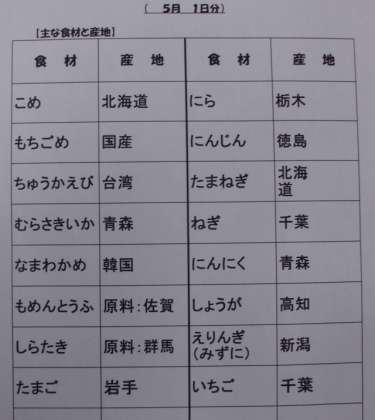 ( 5月 1日分)
【主な食材と産地】
食 材 産 地 食 材 産 地
こめ 北海道 にら 栃木
もちごめ 国産 にんじん 徳島
ちゅうかえび 台湾 たまねぎ 北海
道
むらさきいか 青森 ねぎ 千葉
なまわかめ 韓国 にんにく 青森
もめんとうふ 原料：佐賀 しょうが 高知
しらたき 原料：群馬 えりんぎ 新潟
（みずに）
たまご 岩手 いちご 千葉